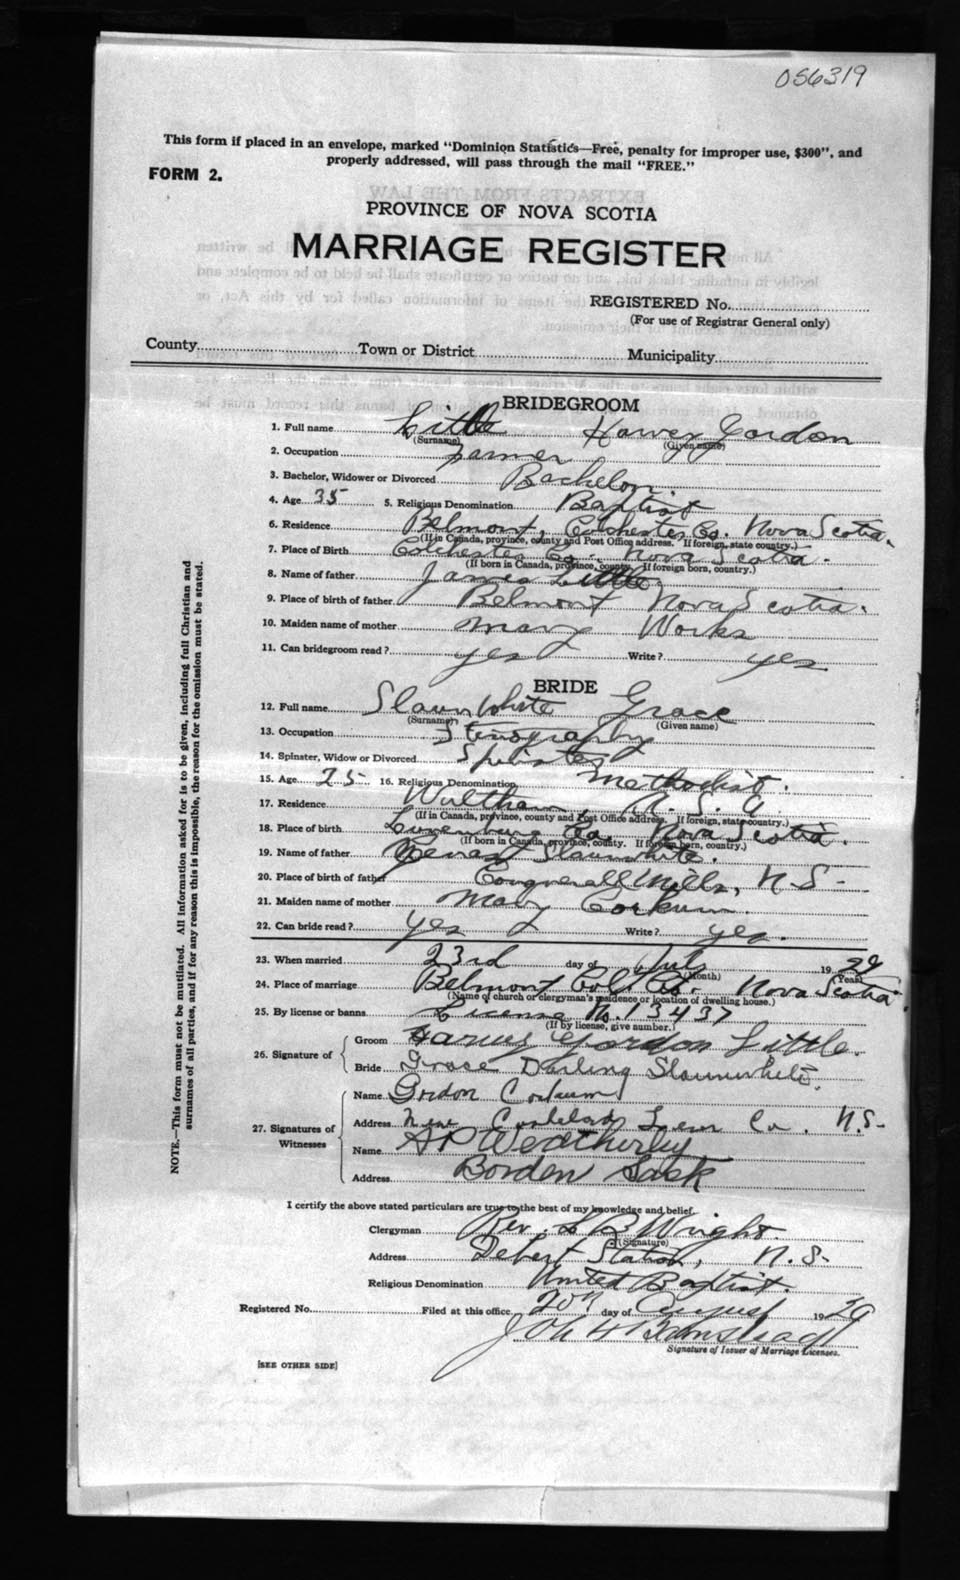 056319
This form if placed in an envelope, marked "Dominion Statistics—Free, penalty for improper use, $300", and
properly addressed, will pass through the mail "FREE."
FORM 2.
PROVINCE OF NOVA SCOTIA
MARRIAGE REGISTER
REGISTERED No.
(For use of Registrar General only)
County Town or District Municipality
BRIDEGROOM
1. Full name Little Harvey Gordon
(Surname) (Given name)
2. Occupation Farmer
3. Bachelor, Widower or Divorced Bachelor.
4. Age 35 5. Religious Denomination Baptist
6. Residence Belmont, Colchester Co. Nova Scotia.
(If in Canada, province, county and Post Office address. If foreign, state country.)
7. Place of Birth Colchester Co. Nova Scotia.
(If born in Canada, province, county. If foreign born, country.)
8. Name of father James Little
9. Place of birth of father Belmont Nova Scotia.
10. Maiden name of mother Mary Works
11. Can bridegroom read? yes Write? yes
BRIDE
12. Full name Slaunwhite Grace
(Surname) (Given name)
13. Occupation Stenography
14. Spinster, Widow or Divorced Spinster
15. Age 25 16. Religious Denomination Methodist.
17. Residence Waltham, U.S.A
(If in Canada, province, county and Post Office address. If foreign, state country.)
18. Place of birth Lunenburg Co. Nova Scotia.
(If born in Canada, province, county. If foreign born, country.)
19. Name of father Slaunwhite.
20. Place of birth of father Conquerall Mills, N.S-
21. Maiden name of mother Mary Corkum.
22. Can bride read? yes Write? yes.
23. When married 23rd day of July 1929
(Month) (Year)
24. Place of marriage Belmont Col. Co. Nova Scotia
(Name of church or clergyman's residence or location of dwelling house.)
25. By license or banns License No. 13437
(If by license, give number.)
26. Signature of Groom Harvey Gordon Little.
Bride Grace Darling Slaunwhite.
27. Signatures of Witnesses Name Gordon Corkum
Address Co. N.S-
Name A P Weatherby
Address Borden Sask
I certify the above stated particulars are true to the best of my knowledge and belief.
Clergyman Rev. L B Wright.
(Signature)
Address Debert Station, N.S-
Religious Denomination United Baptist.
Registered No. Filed at this office day of August 19
Signature of Issuer of Marriage Licenses.
[SEE OTHER SIDE]
NOTE.—This form must not be mutilated. All information asked for is to be given, including full Christian and
surnames of all parties, and if for any reason this is impossible, the reason for the omission must be stated.